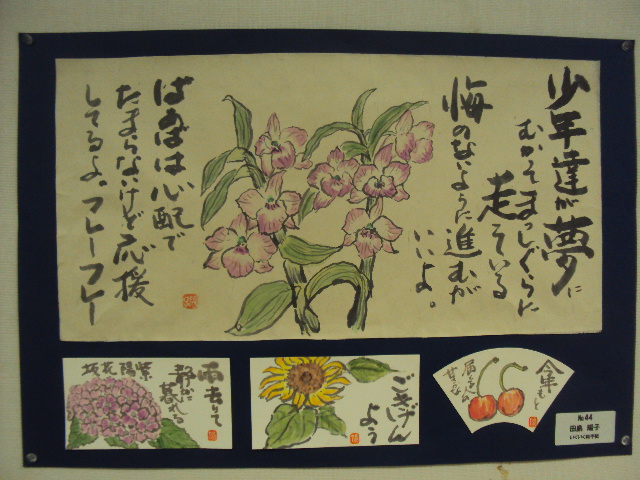 少年達が夢に
むかってまっしぐらに
走っている
悔のないように進むが
いいよ。
ばぁばは心配で
たまらないけど応援
してるよ。フレーフレー
紫陽花坂
雨去りて
静かに
暮れる
ごきげん
よう
今年も
№44
田島 陽子